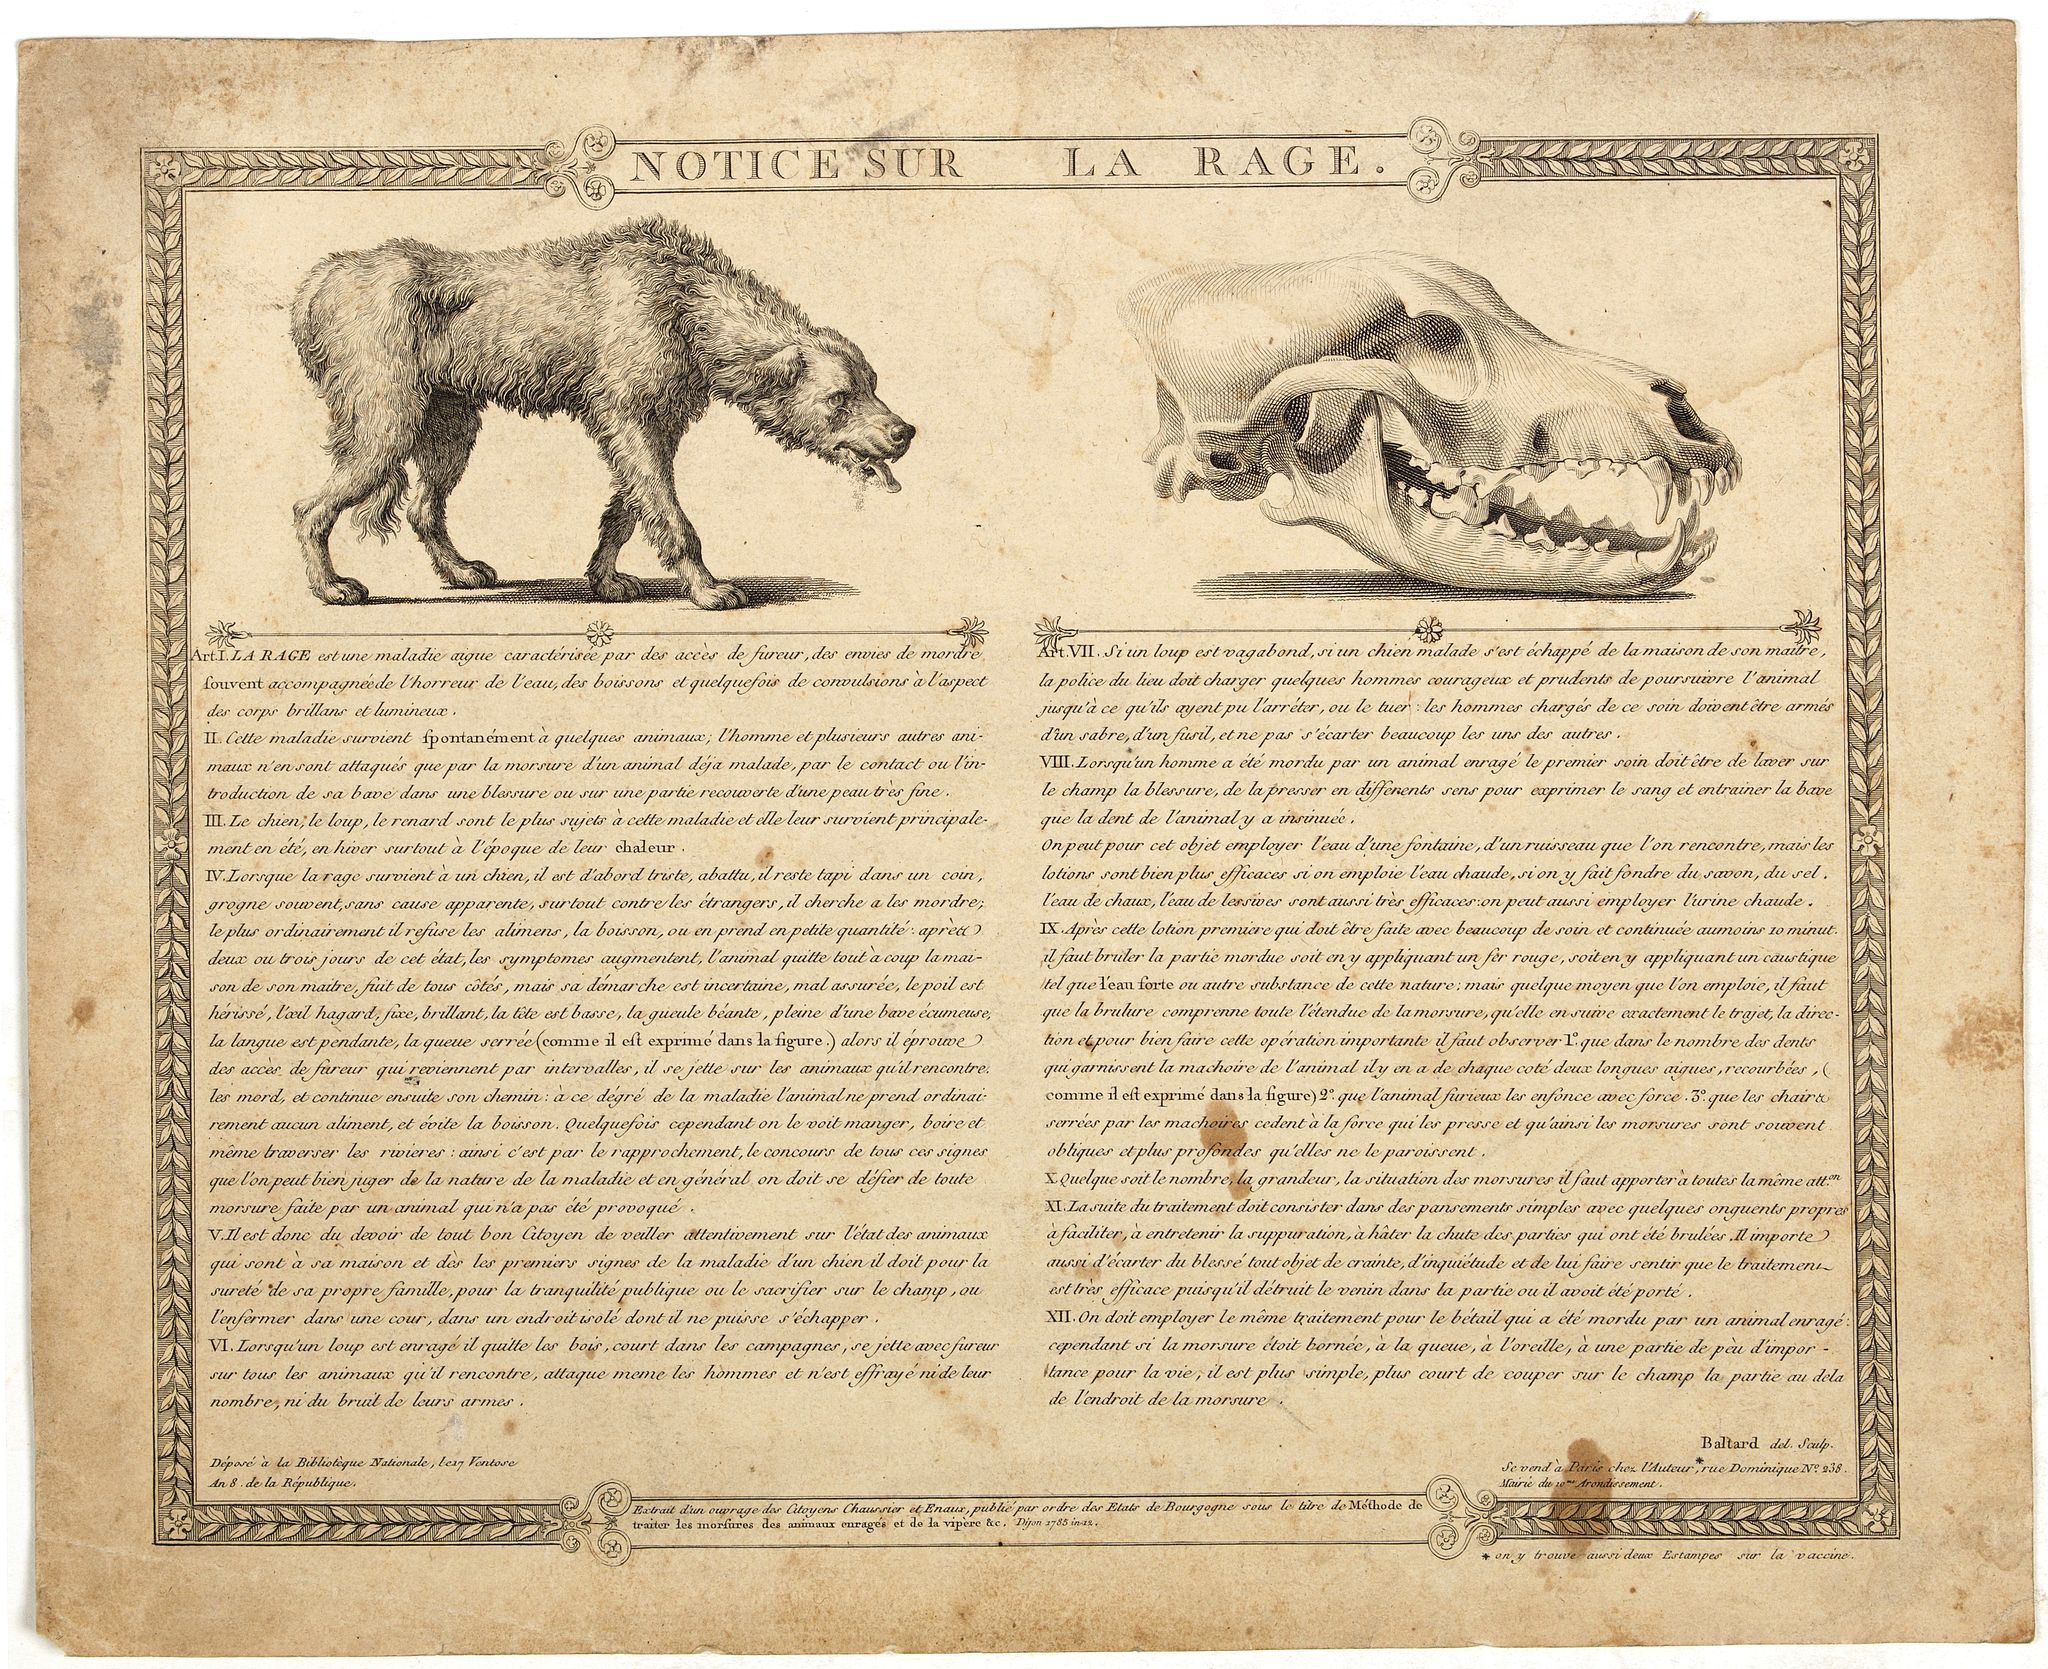 NOTICE SUR LA RAGE.
Art. I. LA RAGE est une maladie aigue caractérisée par des accès de fureur, des envies de mordre
souvent accompagnée de l'horreur de l'eau, des boissons et quelquefois de convulsions à l'aspect
des corps brillans et lumineux.
II. Cette maladie survient spontanément à quelques animaux; l'homme et plusieurs autres ani-
maux n'en sont attaqués que par la morsure d'un animal déja malade, par le contact ou l'in-
troduction de sa bave dans une blessure ou sur une partie recouverte d'une peau très fine.
III. Le chien, le loup, le renard sont le plus sujets à cette maladie et elle leur survient principale-
ment en été, en hiver surtout à l'époque de leur chaleur.
IV. Lorsque la rage survient à un chien, il est d'abord triste, abattu, il reste tapi dans un coin,
grogne souvent, sans cause apparente, surtout contre les étrangers, il cherche a les mordre;
le plus ordinairement il refuse les alimens, la boisson, ou en prend en petite quantité: après
deux ou trois jours de cet état, les symptomes augmentent, l'animal quitte tout à coup la mai-
son de son maitre, fuit de tous côtés, mais sa démarche est incertaine, mal assurée, le poil est
hérissé, l'œil hagard, fixe, brillant, la tête est basse, la gueule béante, pleine d'une bave écumeuse,
la langue est pendante, la queue serrée (comme il est exprimé dans la figure.) alors il éprouve
des accès de fureur qui reviennent par intervalles, il se jette sur les animaux qu'il rencontre.
les mord, et continue ensuite son chemin: à ce dégré de la maladie l'animal ne prend ordinai-
rement aucun aliment, et évite la boisson. Quelquefois cependant on le voit manger, boire et
même traverser les rivieres: ainsi c'est par le rapprochement, le concours de tous ces signes
que l'on peut bien juger de la nature de la maladie et en général on doit se défier de toute
morsure faite par un animal qui n'a pas été provoqué.
V. Il est donc du devoir de tout bon Citoyen de veiller attentivement sur l'état des animaux
qui sont à sa maison et dès les premiers signes de la maladie d'un chien il doit pour la
sureté de sa propre famille, pour la tranquilité publique ou le sacrifier sur le champ, ou
l'enfermer dans une cour, dans un endroit isolé dont il ne puisse s'échapper.
VI. Lorsqu'un loup est enragé il quitte les bois, court dans les campagnes, se jette avec fureur
sur tous les animaux qu'il rencontre, attaque meme les hommes et n'est effrayé ni de leur
nombre, ni du bruit de leurs armes.
Déposé à la Bibliotèque Nationale, le 17 Ventose
An 8. de la République.
Art. VII. Si un loup est vagabond, si un chien malade s'est échappé de la maison de son maitre,
la police du lieu doit charger quelques hommes courageux et prudents de poursuivre l'animal
jusqu'à ce qu'ils ayent pu l'arrêter, ou le tuer: les hommes chargés de ce soin doivent être armés
d'un sabre, d'un fusil, et ne pas s'écarter beaucoup les uns des autres.
VIII. Lorsqu'un homme a été mordu par un animal enragé le premier soin doit être de laver sur
le champ la blessure, de la presser en différents sens pour exprimer le sang et entrainer la bave
que la dent de l'animal y a insinuée.
On peut pour cet objet employer l'eau d'une fontaine, d'un ruisseau que l'on rencontre, mais les
lotions sont bien plus efficaces si on emploie l'eau chaude, si on y fait fondre du savon, du sel.
l'eau de chaux, l'eau de lessives sont aussi très efficaces: on peut aussi employer l'urine chaude.
IX. Après cette lotion premiere qui doit être faite avec beaucoup de soin et continuée aumoins 10 minut.
il faut bruler la partie mordue soit en y appliquant un fer rouge, soit en y appliquant un caustique
tel que l'eau forte ou autre substance de cette nature: mais quelque moyen que l'on emploie, il faut
que la brulure comprenne toute l'étendue de la morsure, qu'elle en suive exactement le trajet, la direc-
tion et pour bien faire cette opération importante il faut observer 1º. que dans le nombre des dents
qui garnissent la machoire de l'animal il y en a de chaque coté deux longues aigues, recourbées, (
comme il est exprimé dans la figure) 2º. que l'animal furieux les enfonce avec force. 3º. que les chairs
serrées par les machoires cedent à la force qui les presse et qu'ainsi les morsures sont souvent
obliques et plus profondes qu'elles ne le paroissent.
X. Quelque soit le nombre, la grandeur, la situation des morsures il faut apporter à toutes la même att.on
XI. La suite du traitement doit consister dans des pansements simples avec quelques onguents propres
à faciliter, à entretenir la suppuration, à hâter la chute des parties qui ont été brulées. Il importe
aussi d'écarter du blessé tout objet de crainte, d'inquiétude et de lui faire sentir que le traitement
est très efficace puisqu'il détruit le venin dans la partie ou il avoit été porté.
XII. On doit employer le même traitement pour le bétail qui a été mordu par un animal enragé:
cependant si la morsure étoit bornée, à la queue, à l'oreille, à une partie de peu d'impor-
tance pour la vie, il est plus simple, plus court de couper sur le champ la partie au dela
de l'endroit de la morsure.
Baltard del. Sculp.
Se vend à Paris chez l'Auteur,* rue Dominique Nº. 238.
Mairie du 10me Arondissement.
Extrait d'un ouvrage des Citoyens Chaussier et Enaux, publié par ordre des Etats de Bourgogne sous le titre de Méthode de
traiter les morsures des animaux enragés et de la vipère &c. Dijon 1785 in-12.
* on y trouve aussi deux Estampes sur la vaccine.